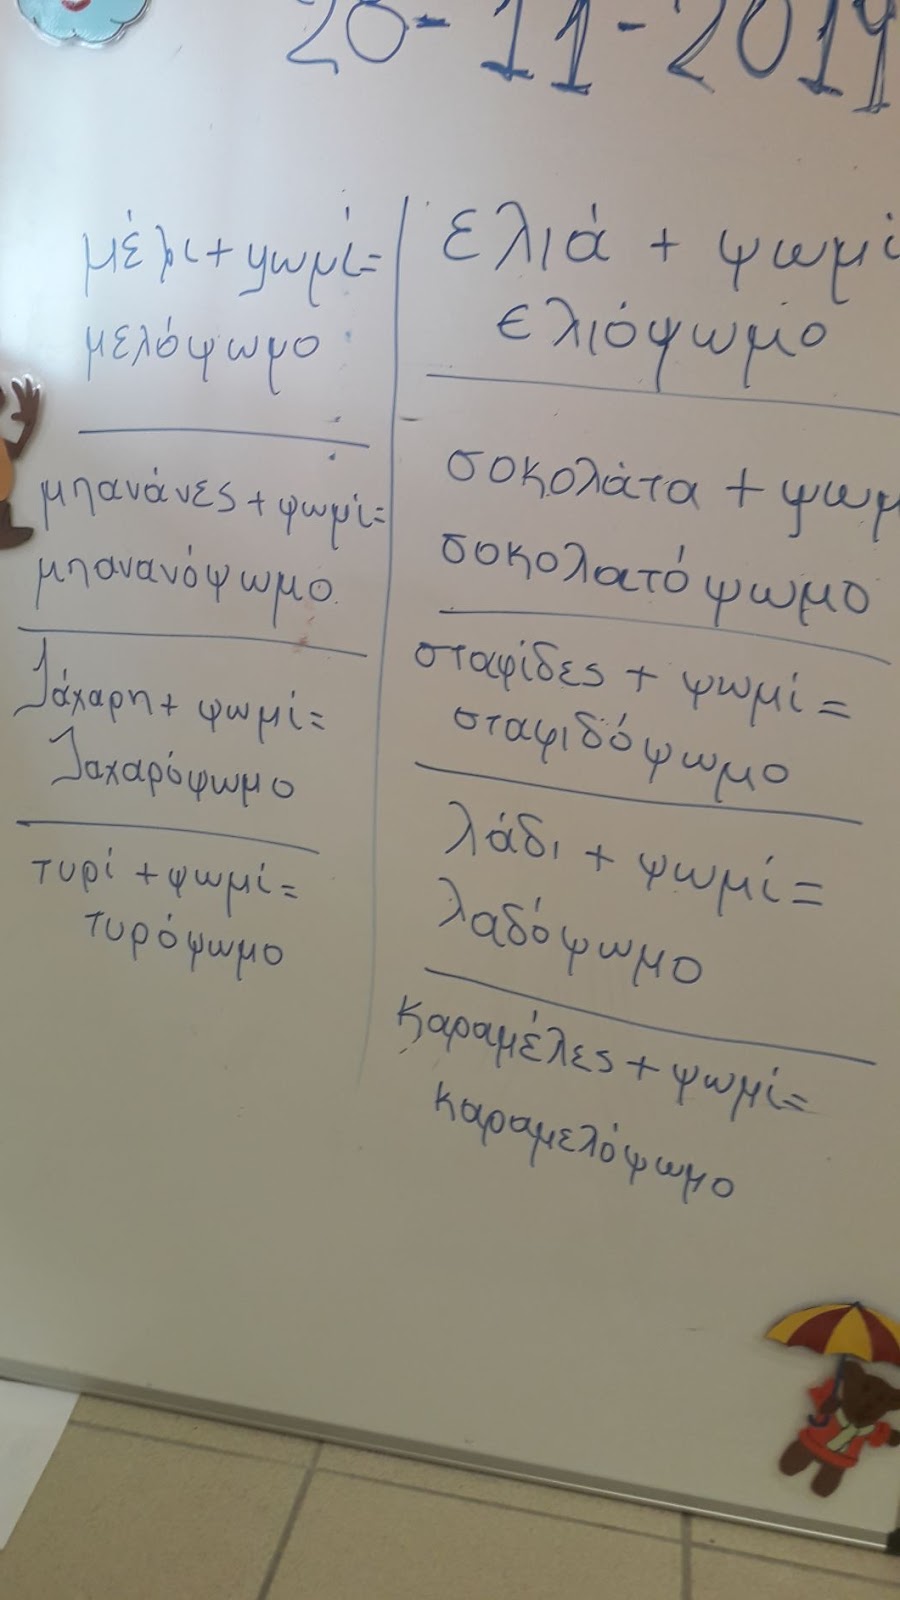 26-11-2019
μέλι + ψωμί =
μελόψωμο
μπανάνες + ψωμί =
μπανανόψωμο
Ζάχαρη + ψωμί =
Ζαχαρόψωμο
τυρί + ψωμί =
τυρόψωμο
ελιά + ψωμί
ελιόψωμο
σοκολάτα + ψωμ
σοκολατόψωμο
σταφίδες + ψωμί =
σταφιδόψωμο
λάδι + ψωμί =
λαδόψωμο
καραμέλες + ψωμί =
καραμελόψωμο